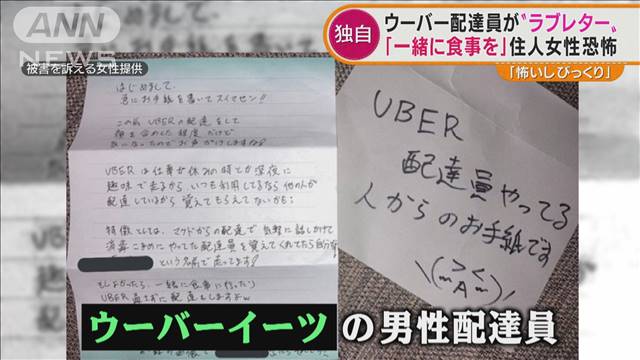 ANN
NEWS
独自
ウーバー配達員が〝ラブレター〟
「一緒に食事を」住人女性恐怖
「怖いしびっくり」
被害を訴える女性提供
はじめまして。
急にお手紙を書いてスイマセン!!
この前UBERの配達をして
顔を合わした程度だけで
UBERは仕事が休みの時とか深夜に
趣味で走るから いつも利用してるなら他の人が
配達しているから覚えてもらえてないかも。
特徴としては、マクドからの配達で気軽に話しかけて
消毒こまめにやってた配達員を覚えてくれてたら自分
という名前で走ってます!
もしよかったら、一緒に食事に行ったり
UBER
UBER
配達員やってる
人からのお手紙です
ウーバーイーツの男性配達員